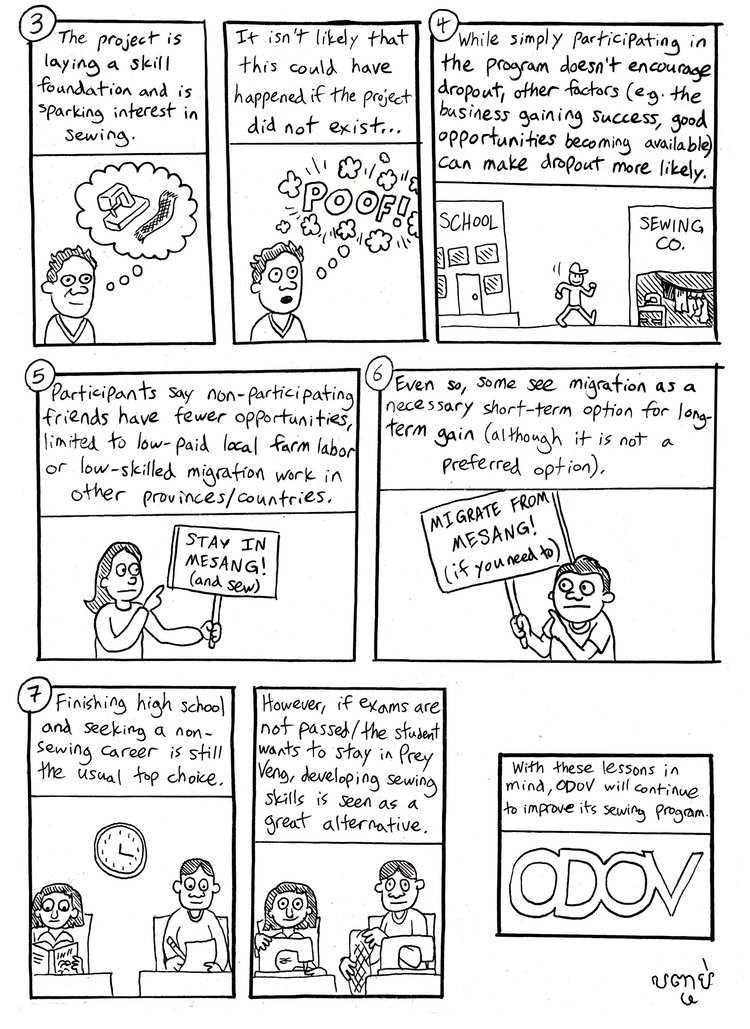 3
The project is
laying a skill
foundation and is
sparking interest in
sewing.
It isn't likely that
this could have
happened if the project
did not exist...
POOF!
4
While simply participating in
the program doesn't encourage
dropout, other factors (e.g. the
business gaining success, good
opportunities becoming available)
can make dropout more likely.
SCHOOL
SEWING
CO.
5
Participants say non-participating
friends have fewer opportunities,
limited to low-paid local farm labor
or low-skilled migration work in
other provinces/countries.
STAY IN
MESANG!
(and sew)
6
Even so, some see migration as a
necessary short-term option for long-
term gain (although it is not a
preferred option).
MIGRATE FROM
MESANG!
(if you need to)
7
Finishing high school
and seeking a non-
sewing career is still
the usual top choice.
However, if exams are
not passed/the student
wants to stay in Prey
Veng, developing sewing
skills is seen as a
great alternative.
With these lessons in
mind, ODOV will continue
to improve its sewing program.
ODOV